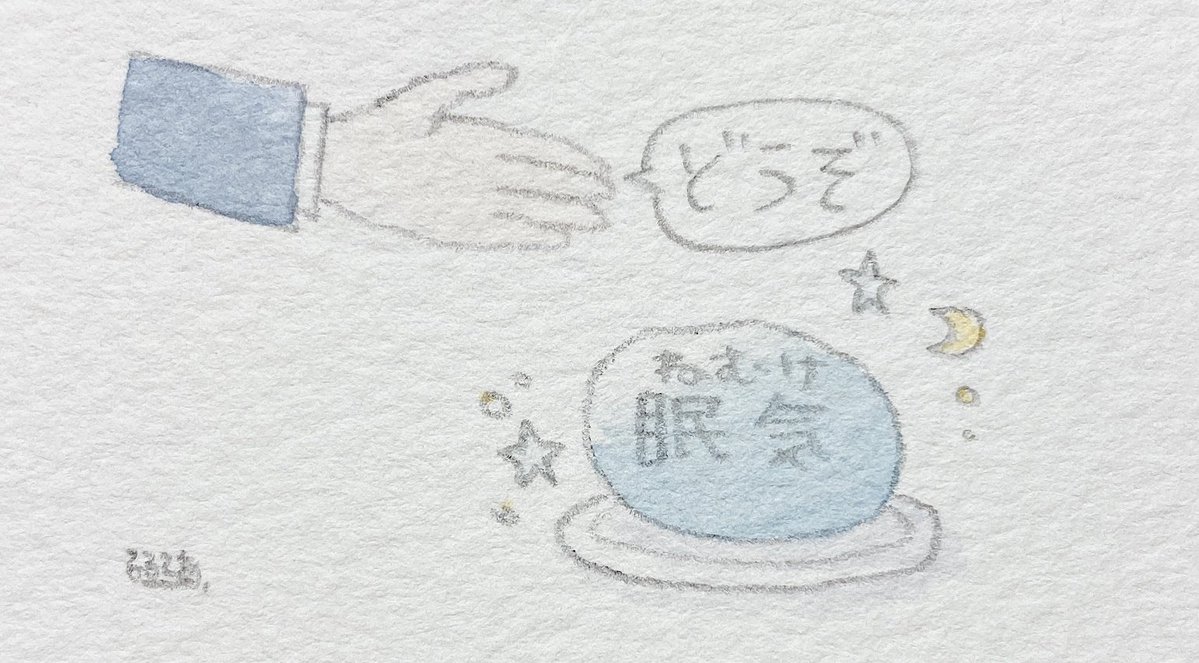 どうぞ
ねむけ
眠気